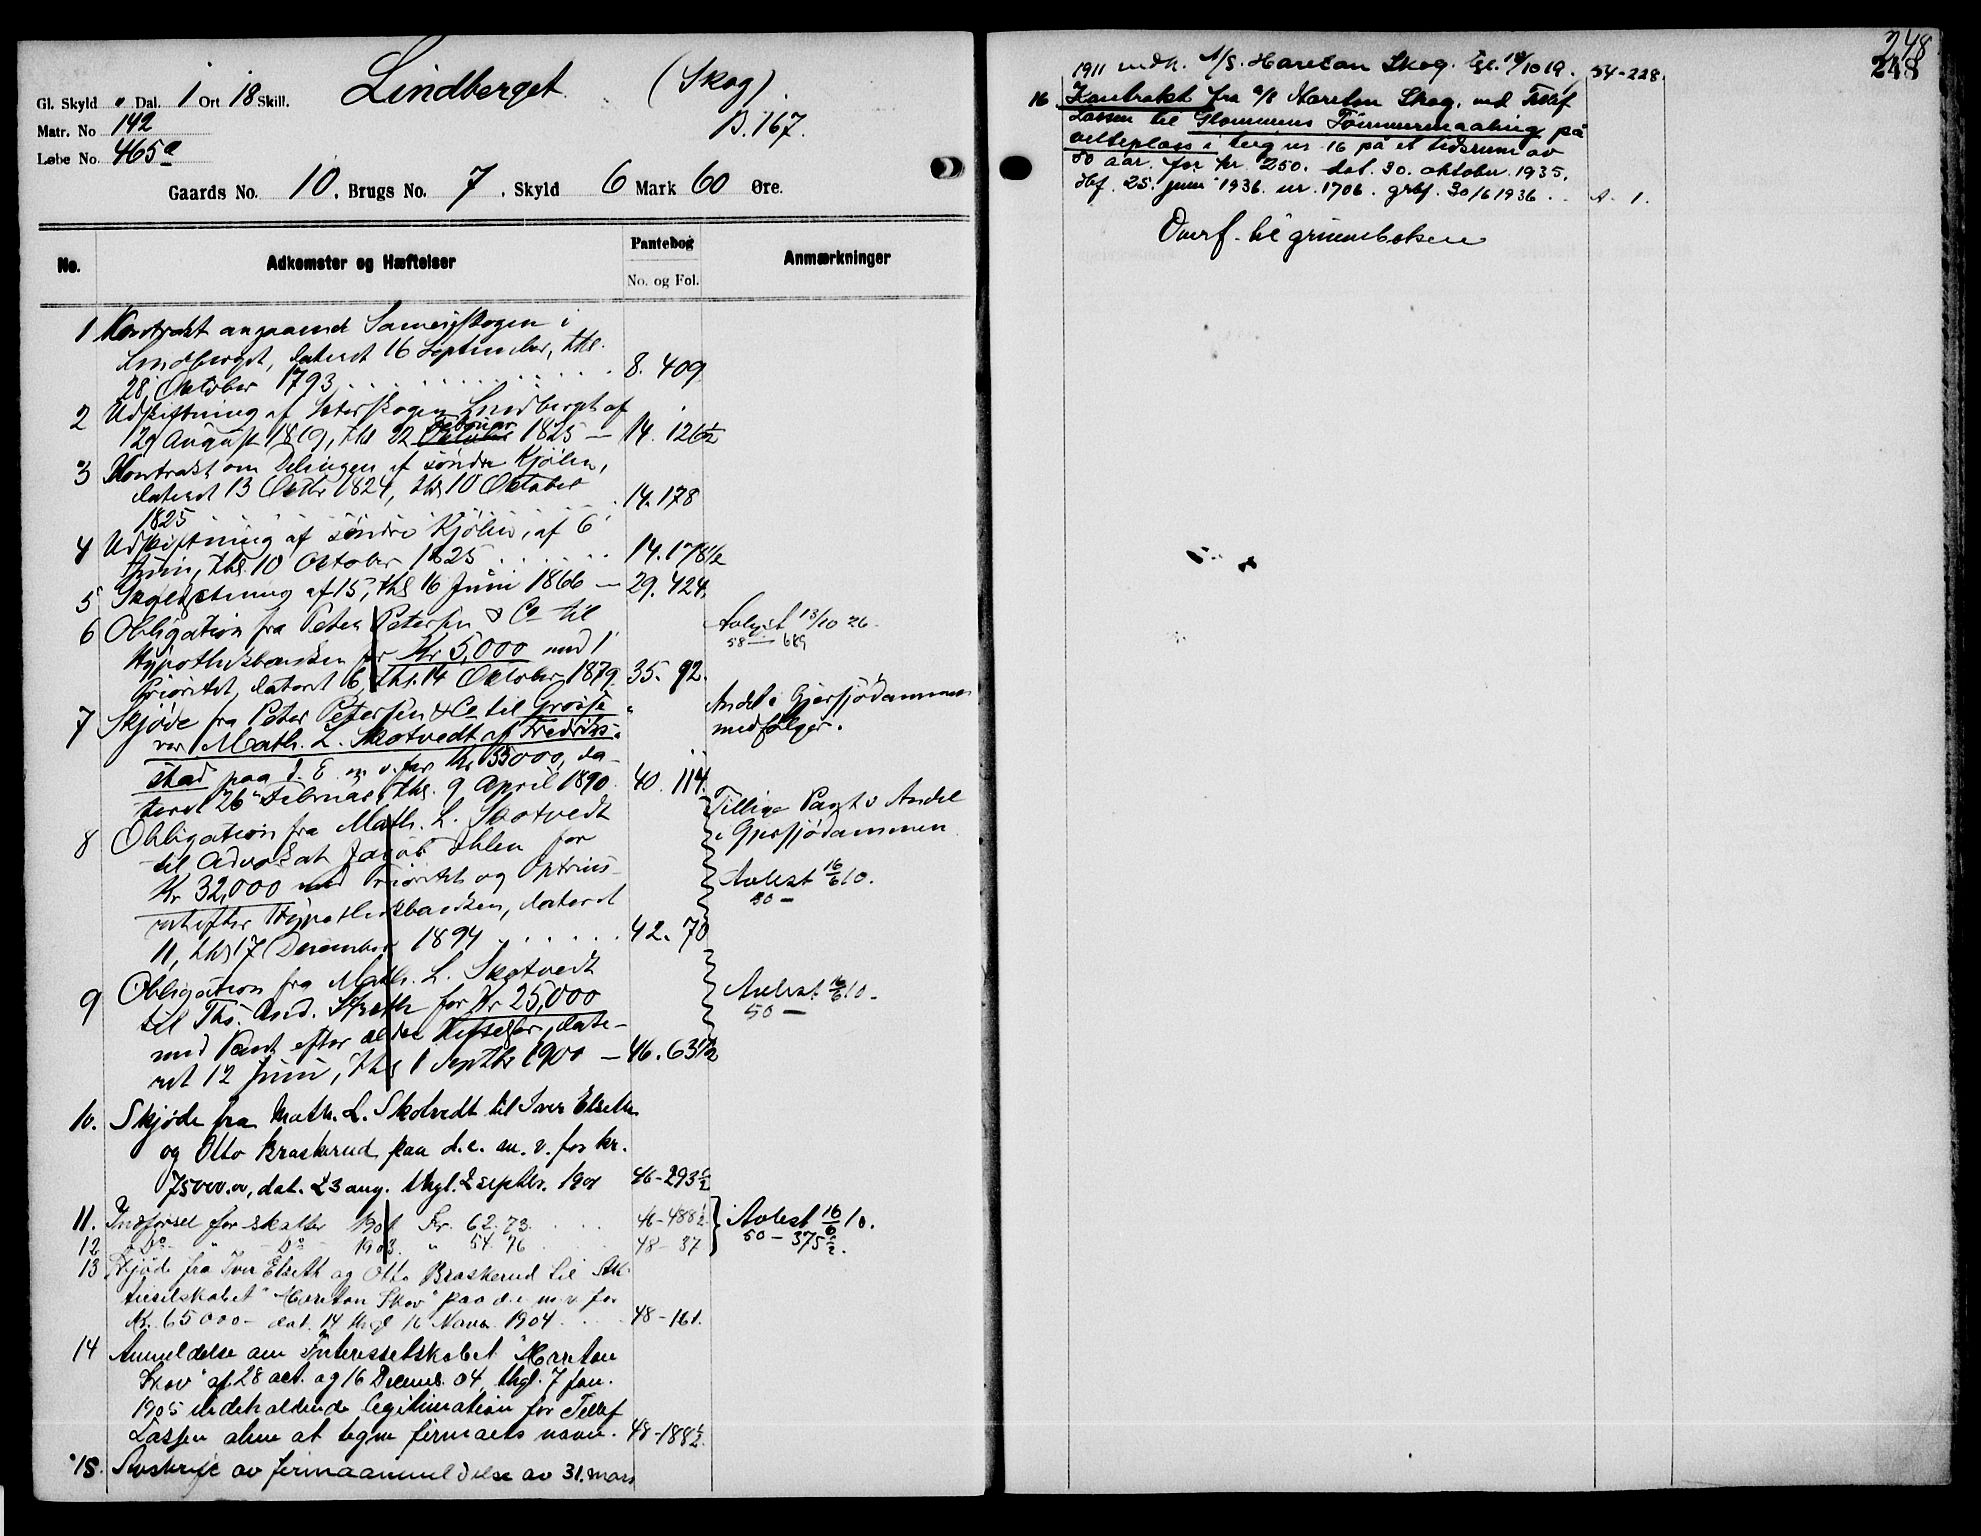 Gl. Skyld " Dal. 1 Ort 18 Skill.
Lindberget (Skog)
Matr. No 142
B. 167.
Løbe No. 465a
Gaards No. 10, Brugs No. 7, Skyld 6 Mark 60 Øre.
No. Adkomster og Hæftelser Pantebog Anmærkninger
No. og Fol.
1 Kontrakt angaaende Sameieskogen i
Lindberget, dateret 16 September, thl.
28 Oktober 1793 . . . 8. 409
2 Udskiftning af Sæterskogen Lindberget af
129 August 1819, thl 22 Oktober Februar 1825 — 14. 126 1/2
3 Kontrakt om Delingen af søndre Kjølen,
dateret 13 Octbr 1824, thl 10 Oktober
1825 . . . 14. 178
4 Udskiftning af søndre Kjølen, af 6
Juni, thl. 10 Oktober 1825 . . . 14. 178 1/2
5 af 15, thl 16 Juni 1866 — 29. 424.
6 Obligation fra Peter Petersen & Co til
Hypothekbanken for Kr 5,000 med 1
Prioritet, dateret 6, thl. 14 Oktober 1879. 35. 92.
Avlyst 13/10 26.
58 — 689
7 Skjøde fra Peter Petersen & Co til Grosse-
rer Math. L. Skotvedt af Fredriks-
stad paa d. E. m. v. for Kr 35000, da-
teret 26 Februar, thl. 9 April 1890. 40. 114.
Andel i Gjersjødammen
medfølger.
8 Obligation fra Math. L. Skotvedt
til Advokat Jacob Ihlen for
Kr 32,000 med Prioritet og Optrins-
ret efter Hypothekbanken, dateret
11, thl 17 December 1894 . . . 42. 70
Tillige Pant i Andel
i Gjersjødammen
Avlest 16/6 10.
50 —
9 Obligation fra Math. L. Skotvedt
til Ths. And. for Kr 25,000
med Pant efter ældre Heftelser, date-
ret 12 Juni, thl 1 Septbr 1900 — 46. 63 1/2
Avlest 16/6 10.
50 —
10. Skjøde fra Math. L. Skotvedt til Iver Elseth
og Otto Braskerud paa d. e. m. v. for kr.
75000.00, dat. 23 aug. thgl. 2 septbr. 1901 46-293 1/2
11. Indførsel for skatter 1901 Kr. 62.73. . . . 46-488 1/2
12 " Do " Do 1903. " 54.76 . . . 48-37
Avlest 16/6 10.
50 — 375 1/2.
13 Skjøde fra Iver Elseth og Otto Braskerud til Ak-
tieselskabet "Hareton Skov" paa d. e. m. v. for
Kr. 65000 - dat. 14 thgl 16 Novbr 1904 . . . 48-161.
14 Anmeldelse om Interessetskabet "Hareton
Skov" af 28 oct. og 16 Decemb. 04, thgl. 7 jan.
1905 indeholdende legitimation for Tellef
Lassen alene at tegne firmaets navn. 48-188 1/2.
15. Avskrift av firmaanmeldelse av 31. mars
248
248
1911 vedk. A/S. Hareton Skog. tgl. 18/10 19. 54-228.
16 Kontrakt fra A/S Hareton Skog. ved Tellef
Lassen til Glommens Tømmermaaling på
velteplass i teig nr. 16 på et tidsrum av
50 aar. for kr. 250. dat. 30. oktober 1935.
dbf. 25. juni 1936. nr. 1706. grbf. 30/6 1936 . . A. 1.
Overf. til grunnboken